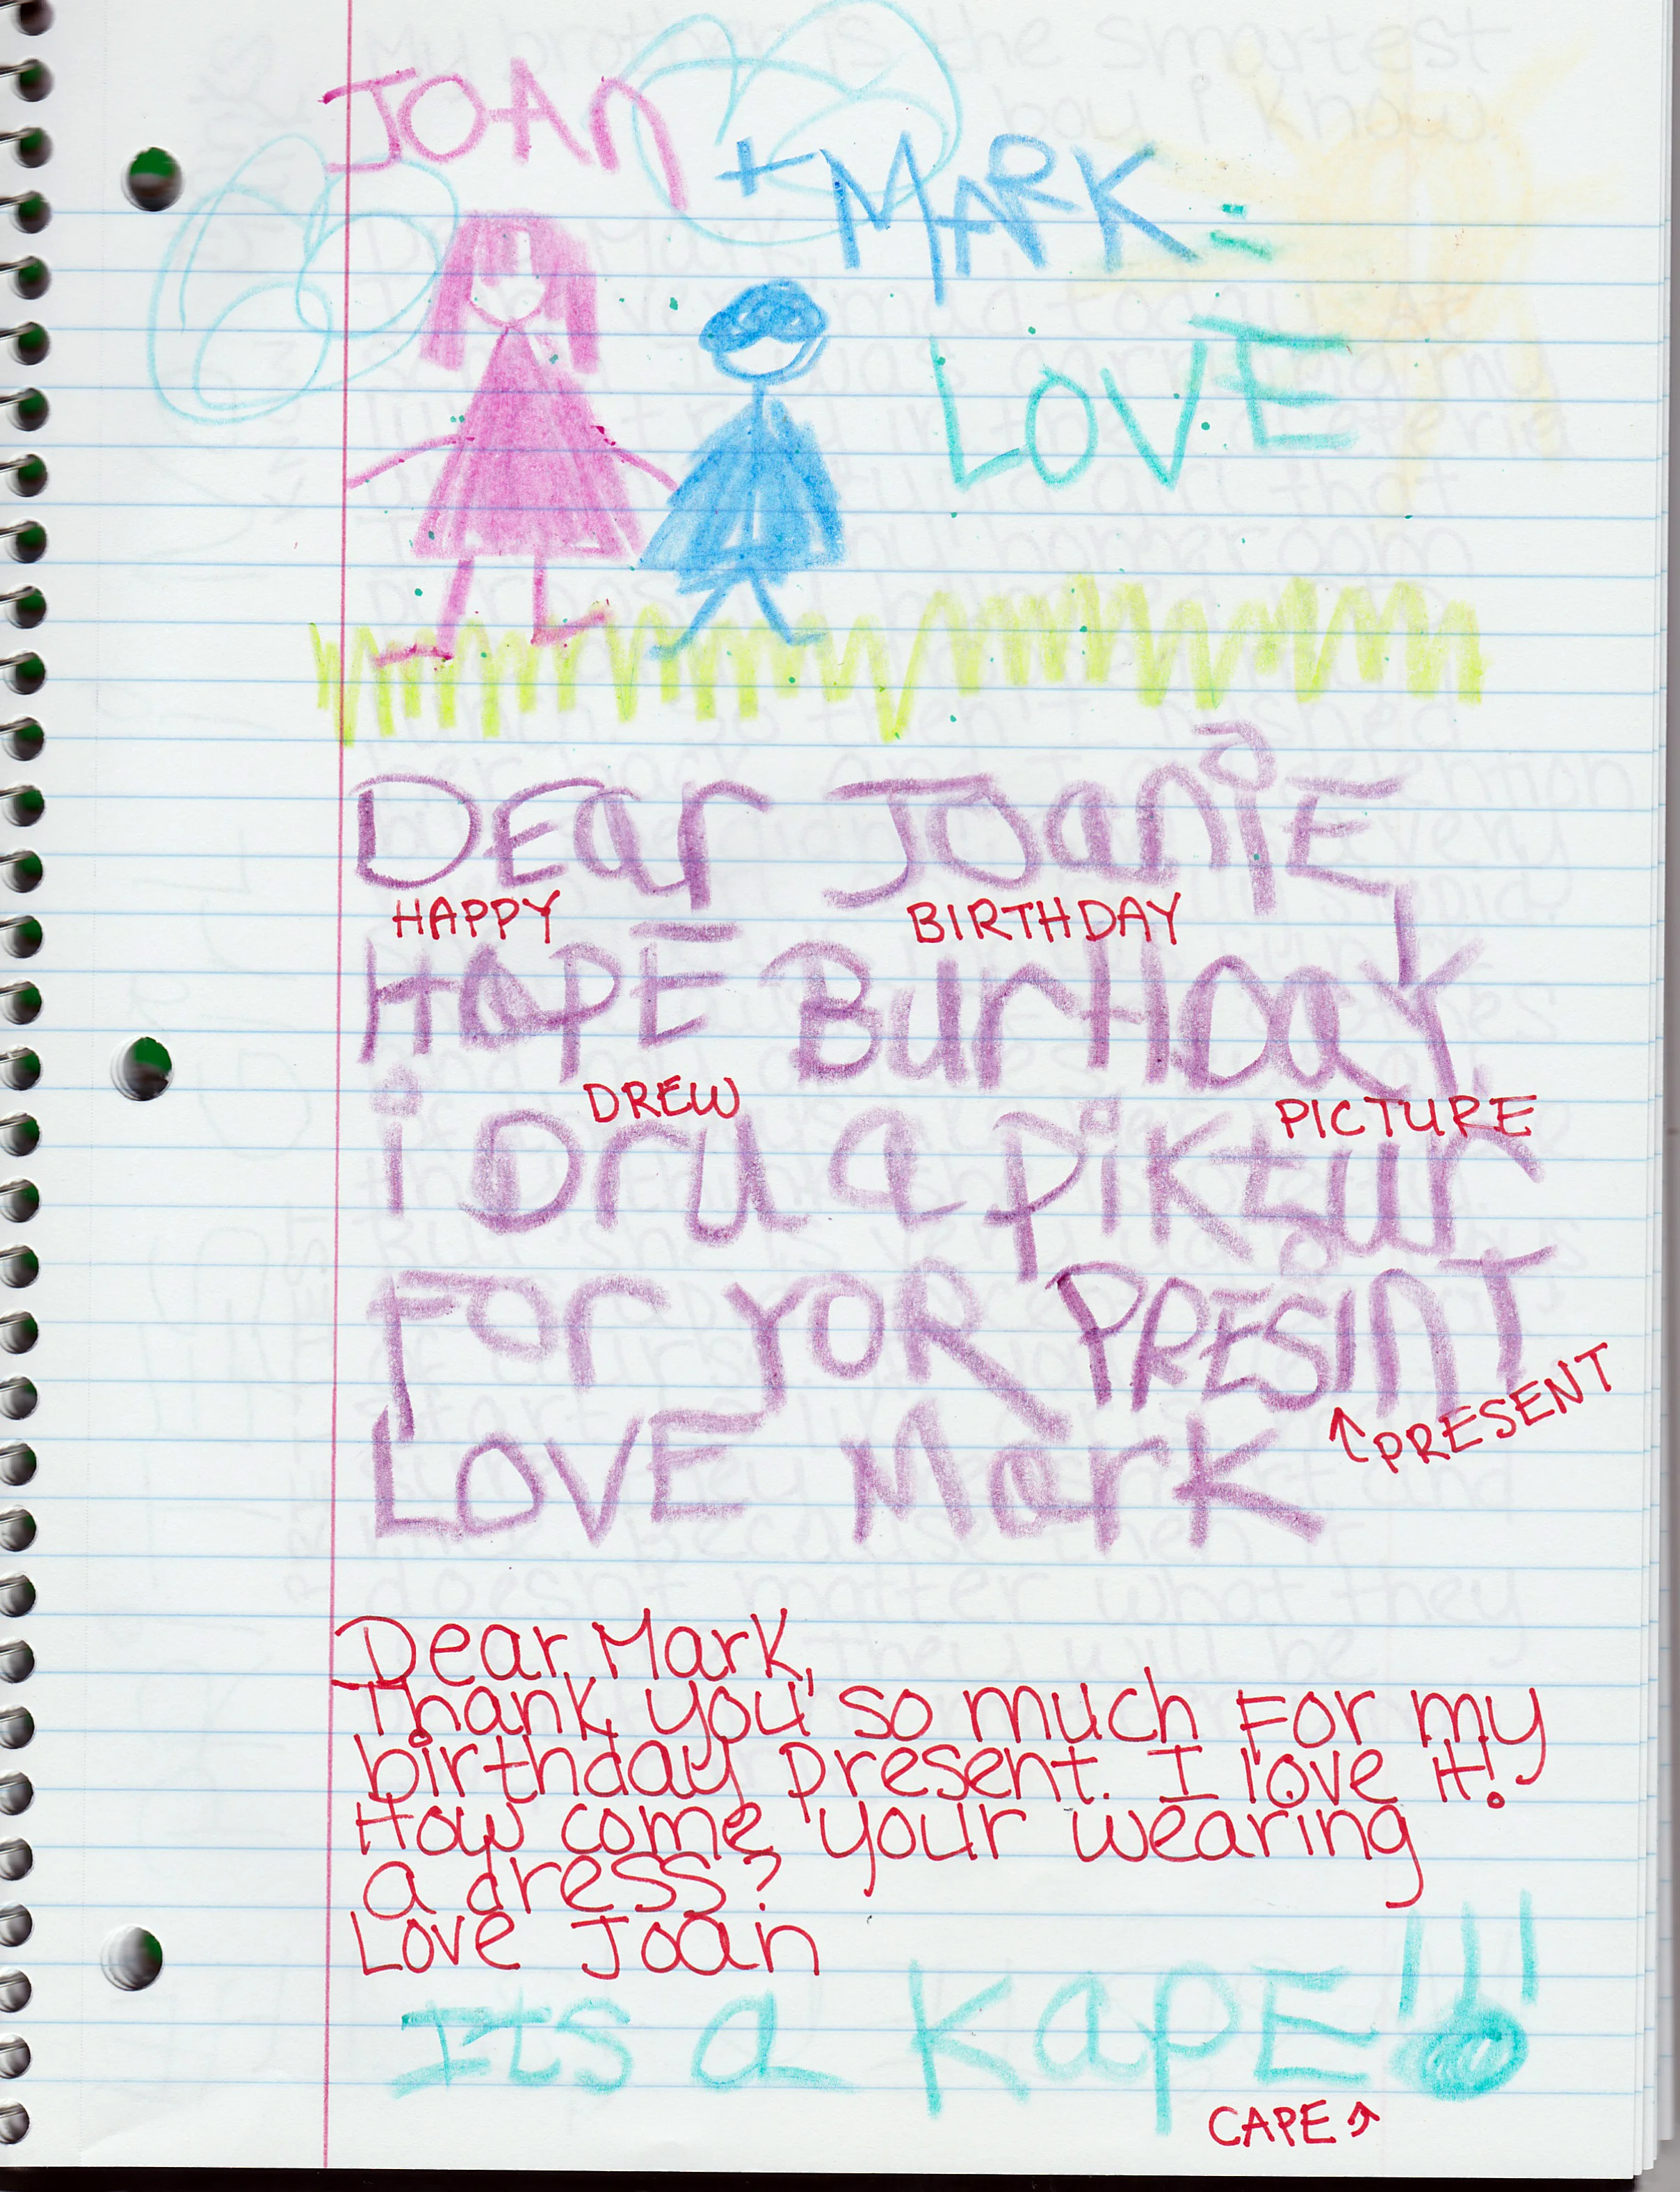 JOAN
+ MARK =
LOVE
DEar JoaniE,
HAPPY BIRTHDAY
HaPE BurthDaY,
DREW PICTURE
i Dru a piktur
For YOR PRESiNT
↑ PRESENT
LOVE Mark
Dear Mark,
Thank you so much For my
birthday present. I love it!
How come your wearing
a dress?
Love Joan
Its a KapE!!!
CAPE ↑